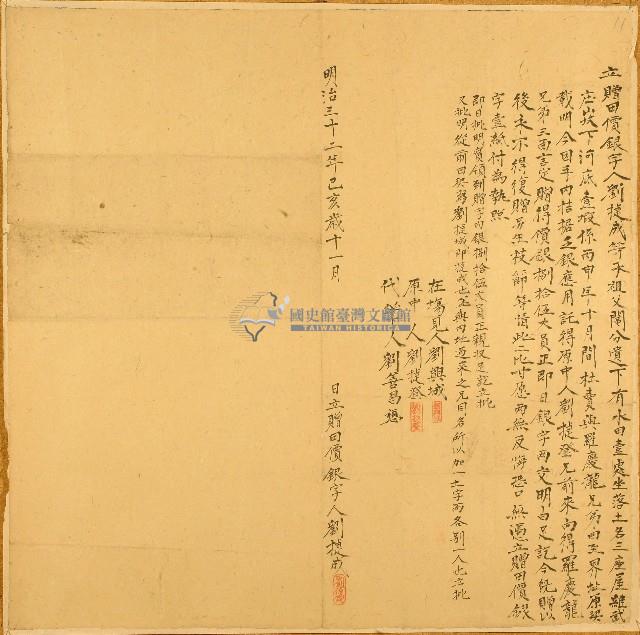 立贈田價銀字人劉捷成等承祖父鬮分遺下有水田壹處坐落土名三座屋
庄山坎下河底壹塅係丙申年十月間杜賣與羅慶龍兄弟四至界址原契
載明今因手內拮据乏銀應用託得原中人劉捷登兄前來向得羅慶龍
兄弟三面言定贈得價銀捌拾伍大員正即日銀字兩交明白足訖今既贈以
後永不得復贈另生枝節等情此二比甘愿兩無反悔恐口無憑立贈田價銀
字壹紙付為執照
即日批明實領到贈字內銀捌拾伍大員正親收足訖立批
又批明從前田契劉捷城即捷成也為與內地近來之兄同名所以加一土字而各別一人也立批
在場見人劉興城
原中人劉捷登
代筆人劉善昌
明治三十二年己亥歲十一月
日立贈田價銀字人劉捷
國史館臺灣文獻館
TAIWAN HISTORICA